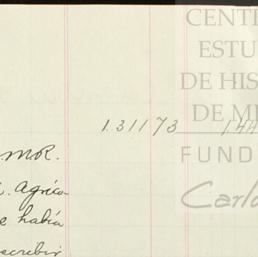 CENT
ESTU
DE HIS
DE M
FUND
Carlo
1.31173
MOR.
. Agríco
e había
scribir